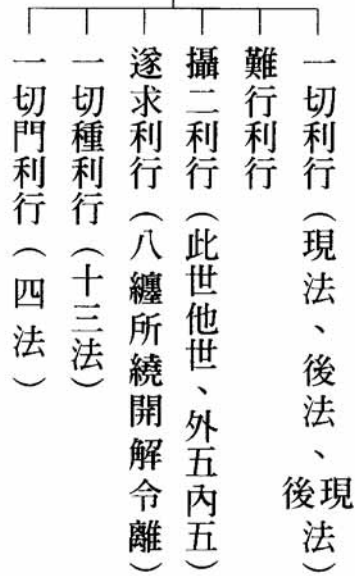 一切利行（現法、後法、現後法）
難行利行
攝二利行（此世他世、外五內五）
遂求利行（八纏所繞開解令離）
一切種利行（十三法）
一切門利行（四法）